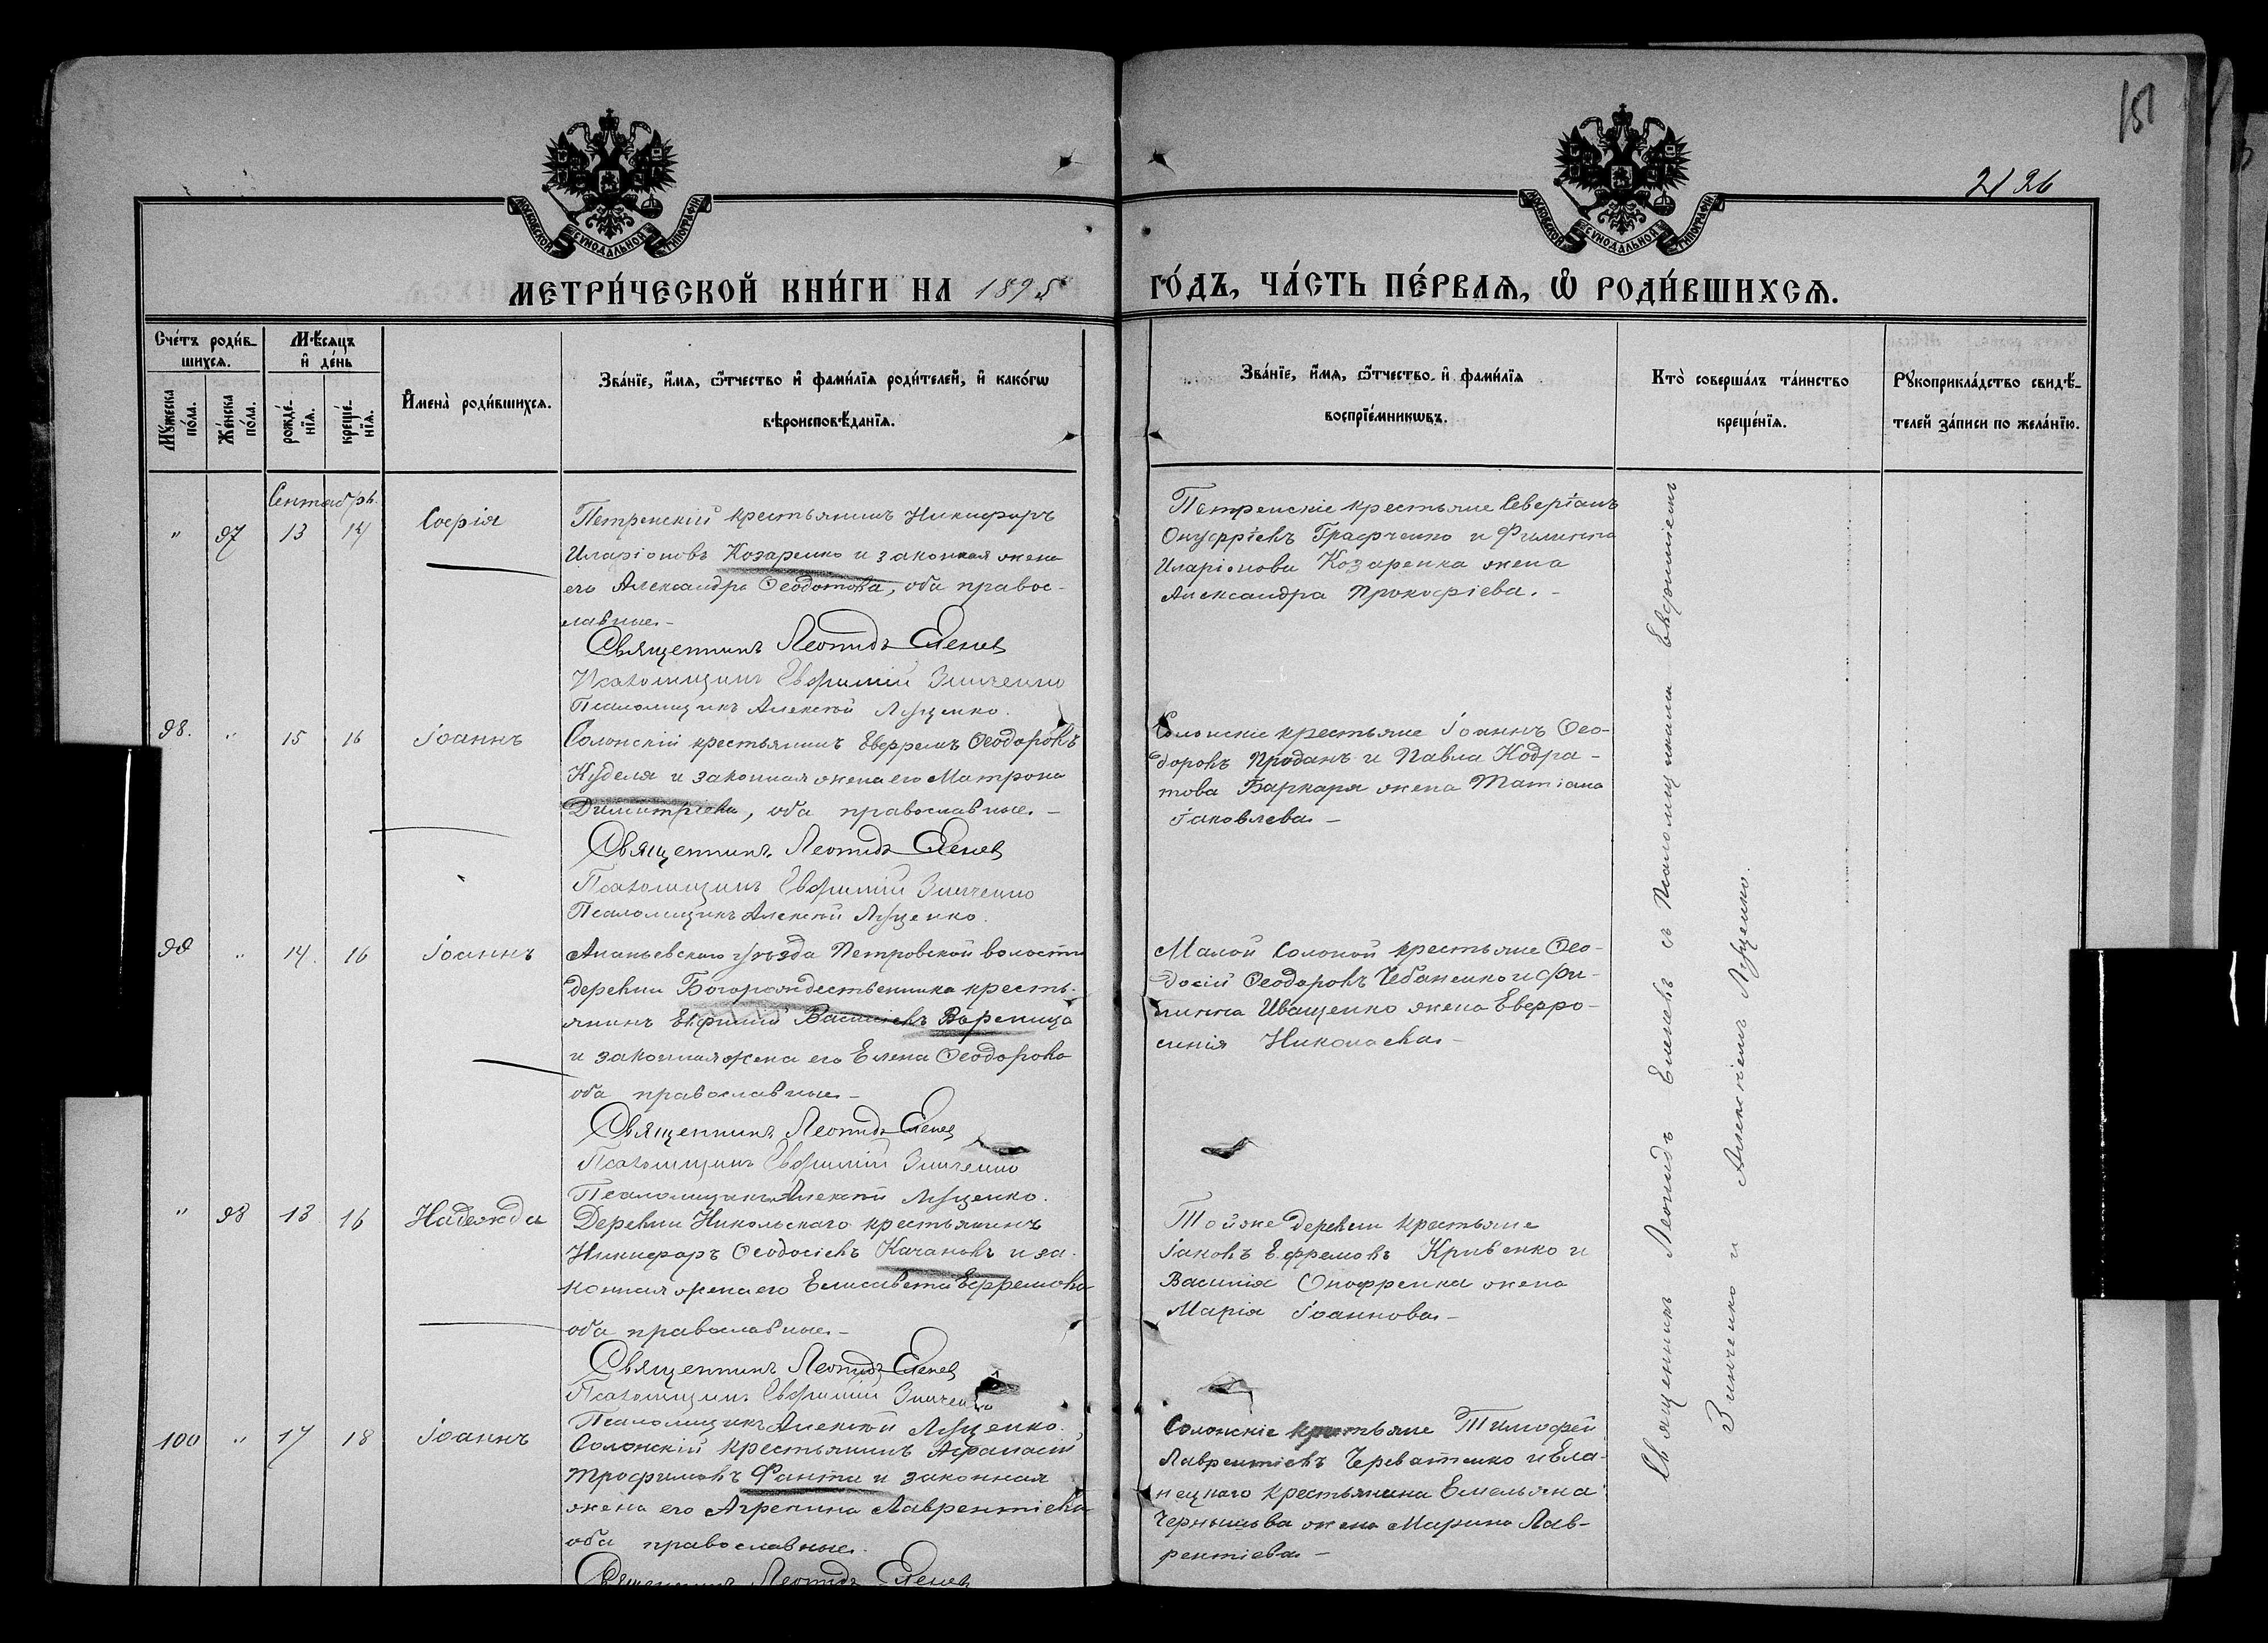 151
2126
МОСКОВСКОЙ СѴНОДАЛЬНОЙ ТИПОГРАФІИ
МОСКОВСКОЙ СѴНОДАЛЬНОЙ ТИПОГРАФІИ
МЕТРИ́ЧЕСКОЙ КНИ́ГИ НА 1895 ГО́ДЪ, ЧА́СТЬ ПЕ́РВАѦ, Ѡ РОДИ́ВШИХСѦ.
Счéтъ роди́в-
шихсѧ.
Мꙋ́жеска по́ла.
Же́нска по́ла.
Мѣ́сѧцъ
и҆ де́нь
рожде́-
нїѧ.
креще́-
нїѧ.
И҆мена̀ роди́вшихсѧ.
Зва́нїе, и҆́мѧ, ѻ҆́тчество и҆ фами́лїѧ роди́телей, и҆ како́гѡ
вѣроисповѣ́данїѧ.
Зва́нїе, и҆́мѧ, ѻ҆́тчество и҆ фами́лїѧ
воспрїе́мникѡвъ.
Кто̀ соверша́лъ та́инство
креще́нїѧ.
Рꙋкоприкла́дство свидѣ́-
телей за́писи по жела́нїю.
Сентябрь.
" 97 13 14 Софія
Петренскій крестьянинъ Никифоръ
Иларіоновъ Козаренко и законная жена
его Александра Ѳеодотова, оба правос-
лавные.-
Священникъ Леонидъ Еленев
Псаломщикъ Евфимій Зинченко
Псаломщикъ Алексѣй Луценко.
Петренскіе крестьяне Северіанъ
Онуфріевъ Графченко и Филиппа
Иларіонова Козаренка жена
Александра Прокофіева.-
98. " 15 16 Іоаннъ
Солонскій крестьянинъ Ефремъ Ѳеодоровъ
Куделя и законная жена его Матрона
Димитріева, оба православные.-
Священникъ Леонидъ Еленев
Псаломщикъ Евфимій Зинченко
Псаломщикъ Алексѣй Луценко.
Солонскіе крестьяне Іоаннъ Ѳео-
доровъ Проданъ и Павла Кодра-
това Баркаря жена Татіана
Іаковлева.-
99 " 14 16 Іоаннъ
Ананьевскаго уѣзда Петровской волости
деревни Богорождественника кресть-
янинъ Евфимій Васильевъ Вареница
и законная жена его Елена Ѳеодорова
оба православные.-
Священникъ Леонидъ Еленев
Псаломщикъ Евфимій Зинченко
Псаломщикъ Алексѣй Луценко.
Малой Солоной крестьяне Ѳео-
досій Ѳеодоровъ Чебаненко и Фи-
липпа Иващенко жена Евфро-
синія Николаева.-
" 98 13 16 Надежда
Деревни Никольскаго крестьянинъ
Никифоръ Ѳеодосіевъ Качановъ и за-
конная жена его Елисавета Ефремова
оба православные.-
Священникъ Леонидъ Еленев
Псаломщикъ Евфимій Зинченко
Псаломщикъ Алексѣй Луценко.
Той же деревни крестьяне
Іаковъ Ефремовъ Кривенко и
Василія Онофренка жена
Марія Іоаннова.-
100 " 17 18 Іоаннъ
Солонскій крестьянинъ Афанасій
Трофимовъ Фанта и законная
жена его Агрепина Лаврентіева
оба православные.
Священникъ Леонидъ Еленев
Солонскіе крестьяне Тимофей
Лаврентіевъ Череватенко и Ела-
нецкаго крестьянина Емельяна
Чернышова жена Марина Лав-
рентіева.-
Священникъ Леонидъ Еленевъ съ Псаломщиками Евфиміемъ
Зинченко и Алексѣемъ Луценко.